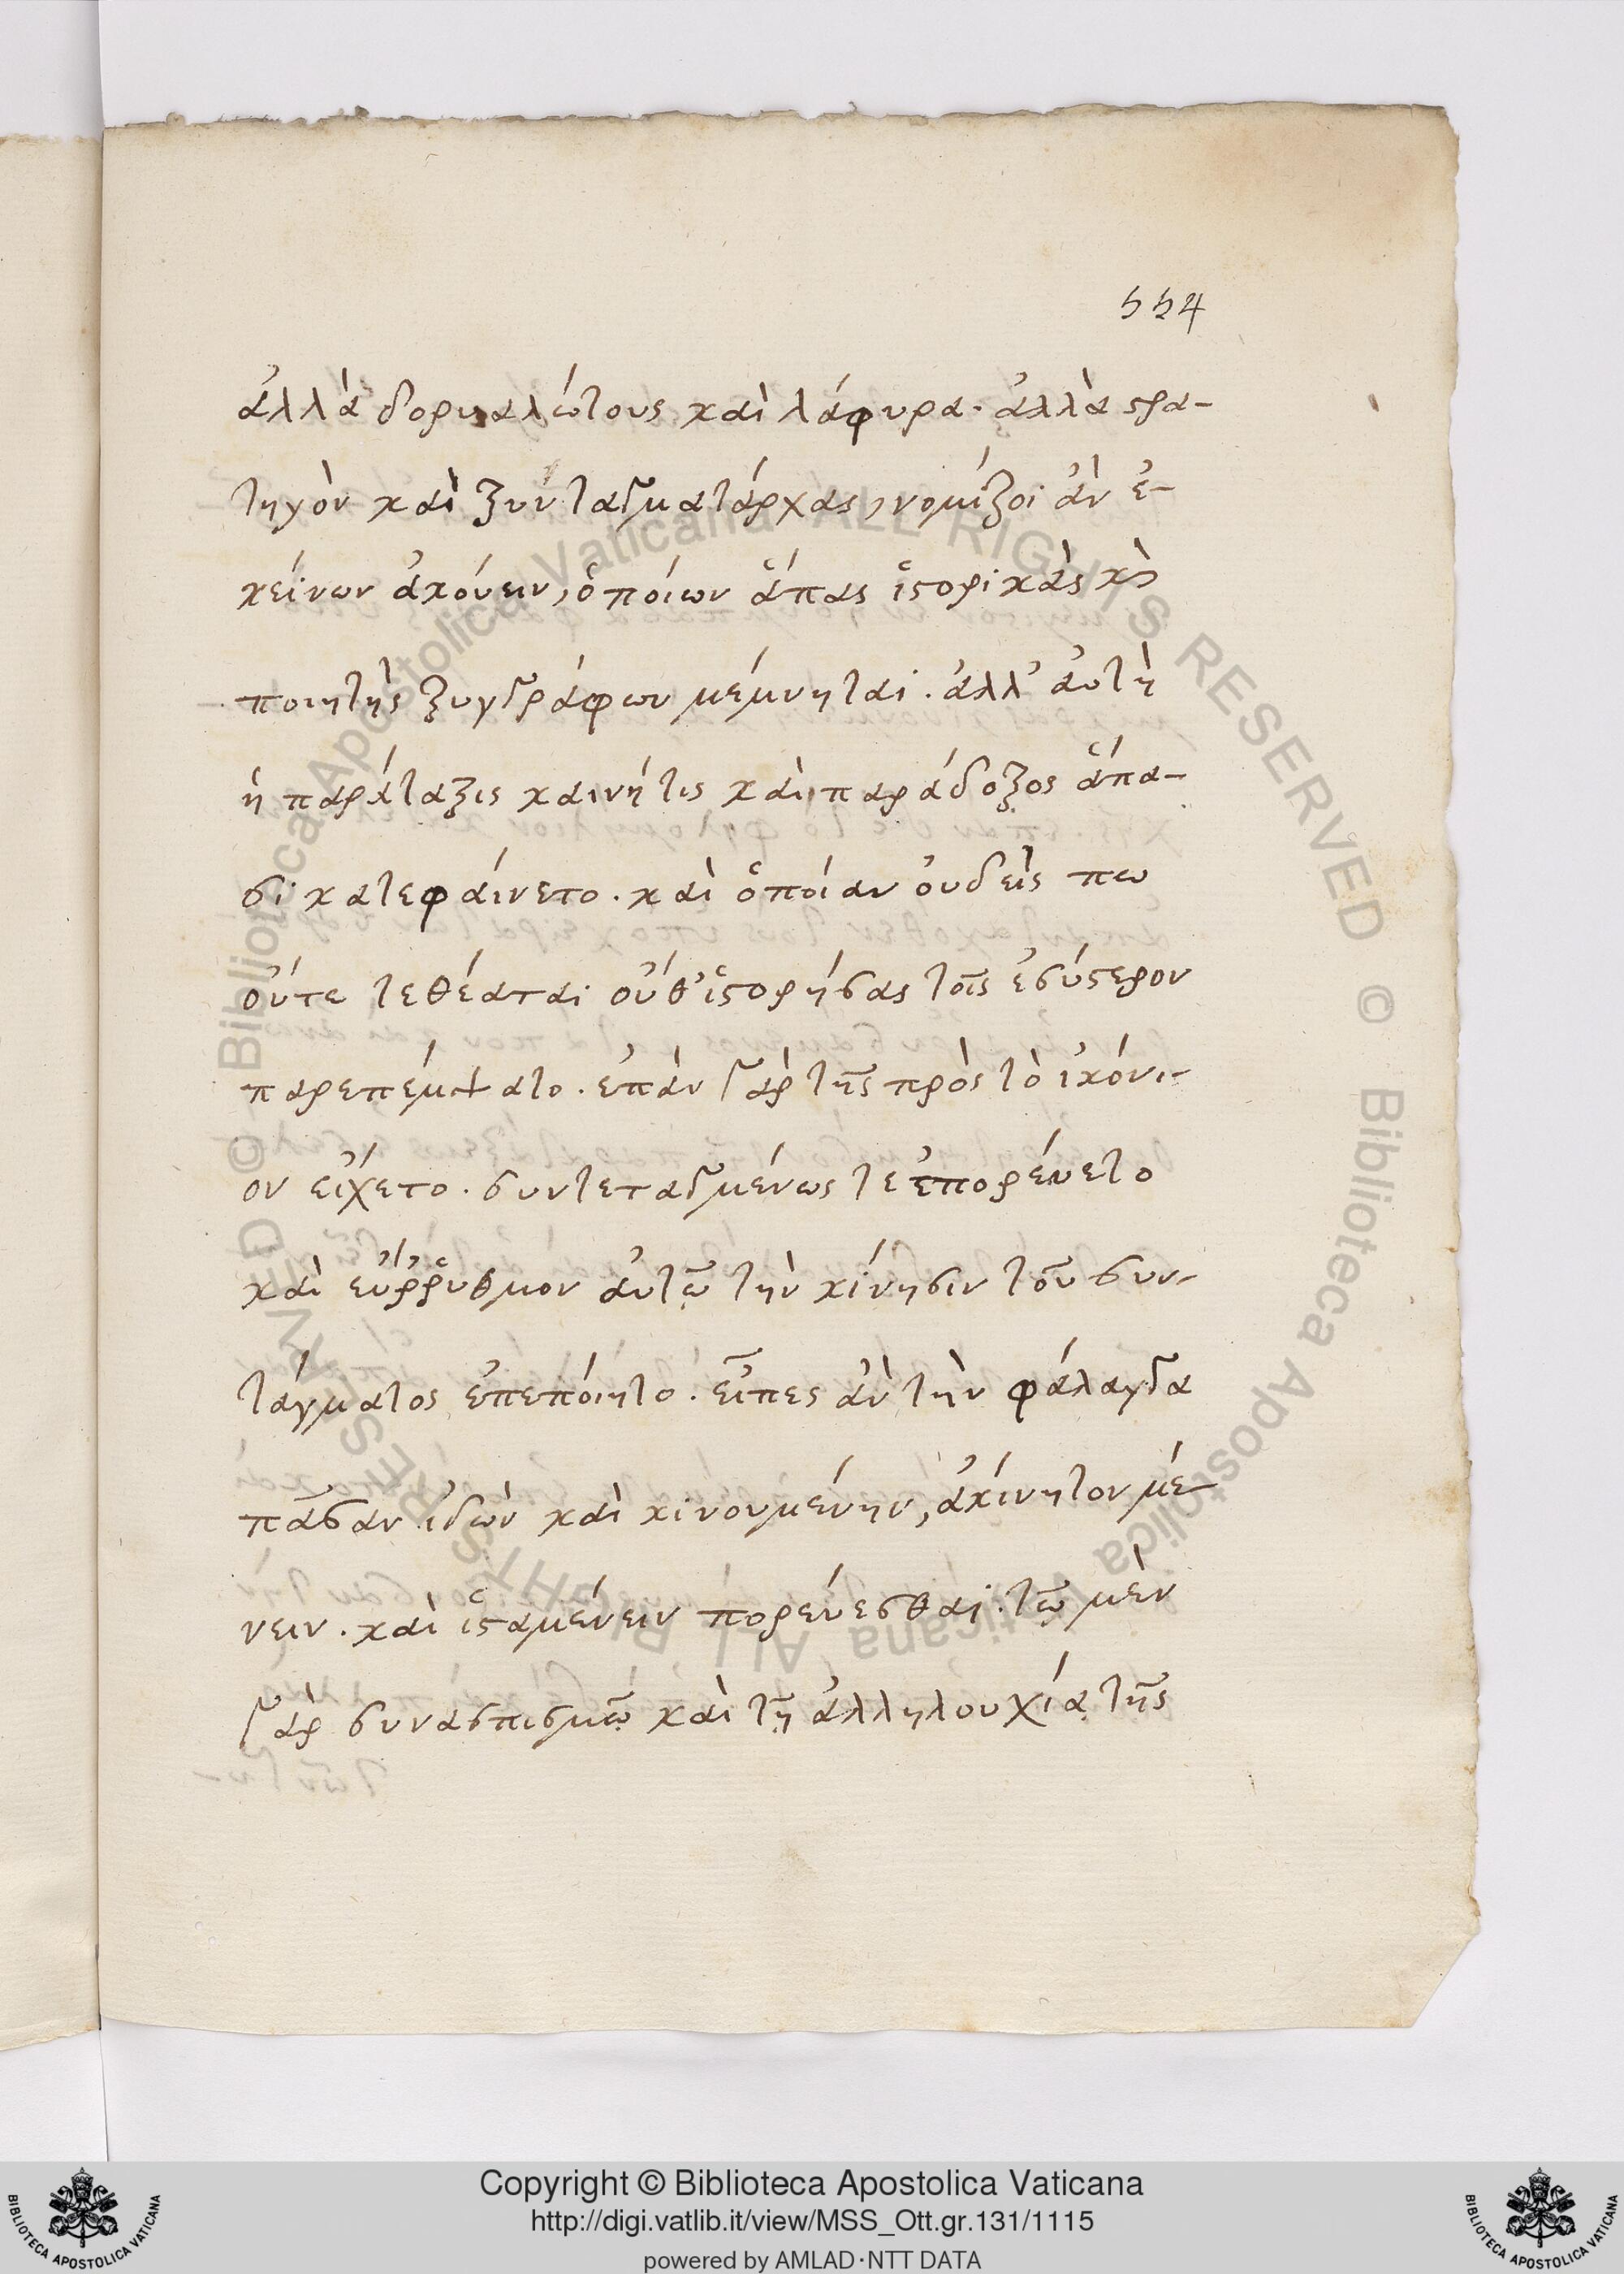 554
ἀλλὰ δορυαλώτους καὶ λάφυρα. ἀλλὰ στρα-
τηγὸν καὶ ξυνταγματάρχας, νομίζοι ἂν ἐ-
κείνων ἀκούειν, ὁποίων ἅπας ἱστορικὰς κὶ
ποιητὴς ξυγγράφων μέμνηται. ἀλλ' αὐτὴ
ἡ παράταξις καινή τις καὶ παράδοξος ἅπα-
σι κατεφαίνετο. καὶ ὁποίαν οὐδείς πω
οὔτε τεθέαται οὔθ' ἱστορήσας τοῖς ἐσύστερον
παρεπέμψατο. ἐπὰν γὰρ τῆς πρὸς τὸ ἰκόνι-
ον εἴχετο. συντεταγμένως τε ἐπορεύετο
καὶ εὔῤῥυθμον αὐτῷ τὴν κίνησιν τοῦ συν-
τάγματος ἐπεπόιητο. εἶπες ἂν τὴν φάλαγγα
πᾶσαν ἰδὼν καὶ κινουμένην, ἀκίνητον μέ-
νειν. καὶ ἱσταμένειν πορεύεσθαι. τῷ μὲν
γὰρ συνασπισμῷ καὶ τῇ ἀλληλουχίᾳ τῆς
Copyright © Biblioteca Apostolica Vaticana
http://digi.vatlib.it/view/MSS_Ott.gr.131/1115
powered by AMLAD·NTT DATA
BIBLIOTECA APOSTOLICA VATICANA
BIBLIOTECA APOSTOLICA VATICANA
© Biblioteca Apostolica Vaticana ALL RIGHTS RESERVED © Biblioteca Apostolica Vaticana ALL RIGHTS RESERVED